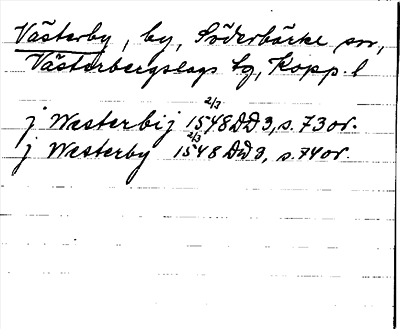 Västerby, by, Söderbärke sn,
Västerbergslags tg, Kopp. l
j Westerbij 2/3 1548 DD 3, s. 73 or.
j Westerby 2/3 1548 DD 3, s. 74 or.